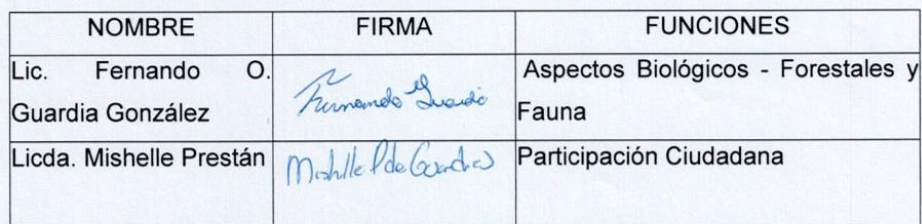 NOMBRE FIRMA FUNCIONES
Lic. Fernando O. Fernando Guardia Aspectos Biológicos - Forestales y
Guardia González Fauna
Licda. Mishelle Prestán Mishelle P de Guardia Participación Ciudadana